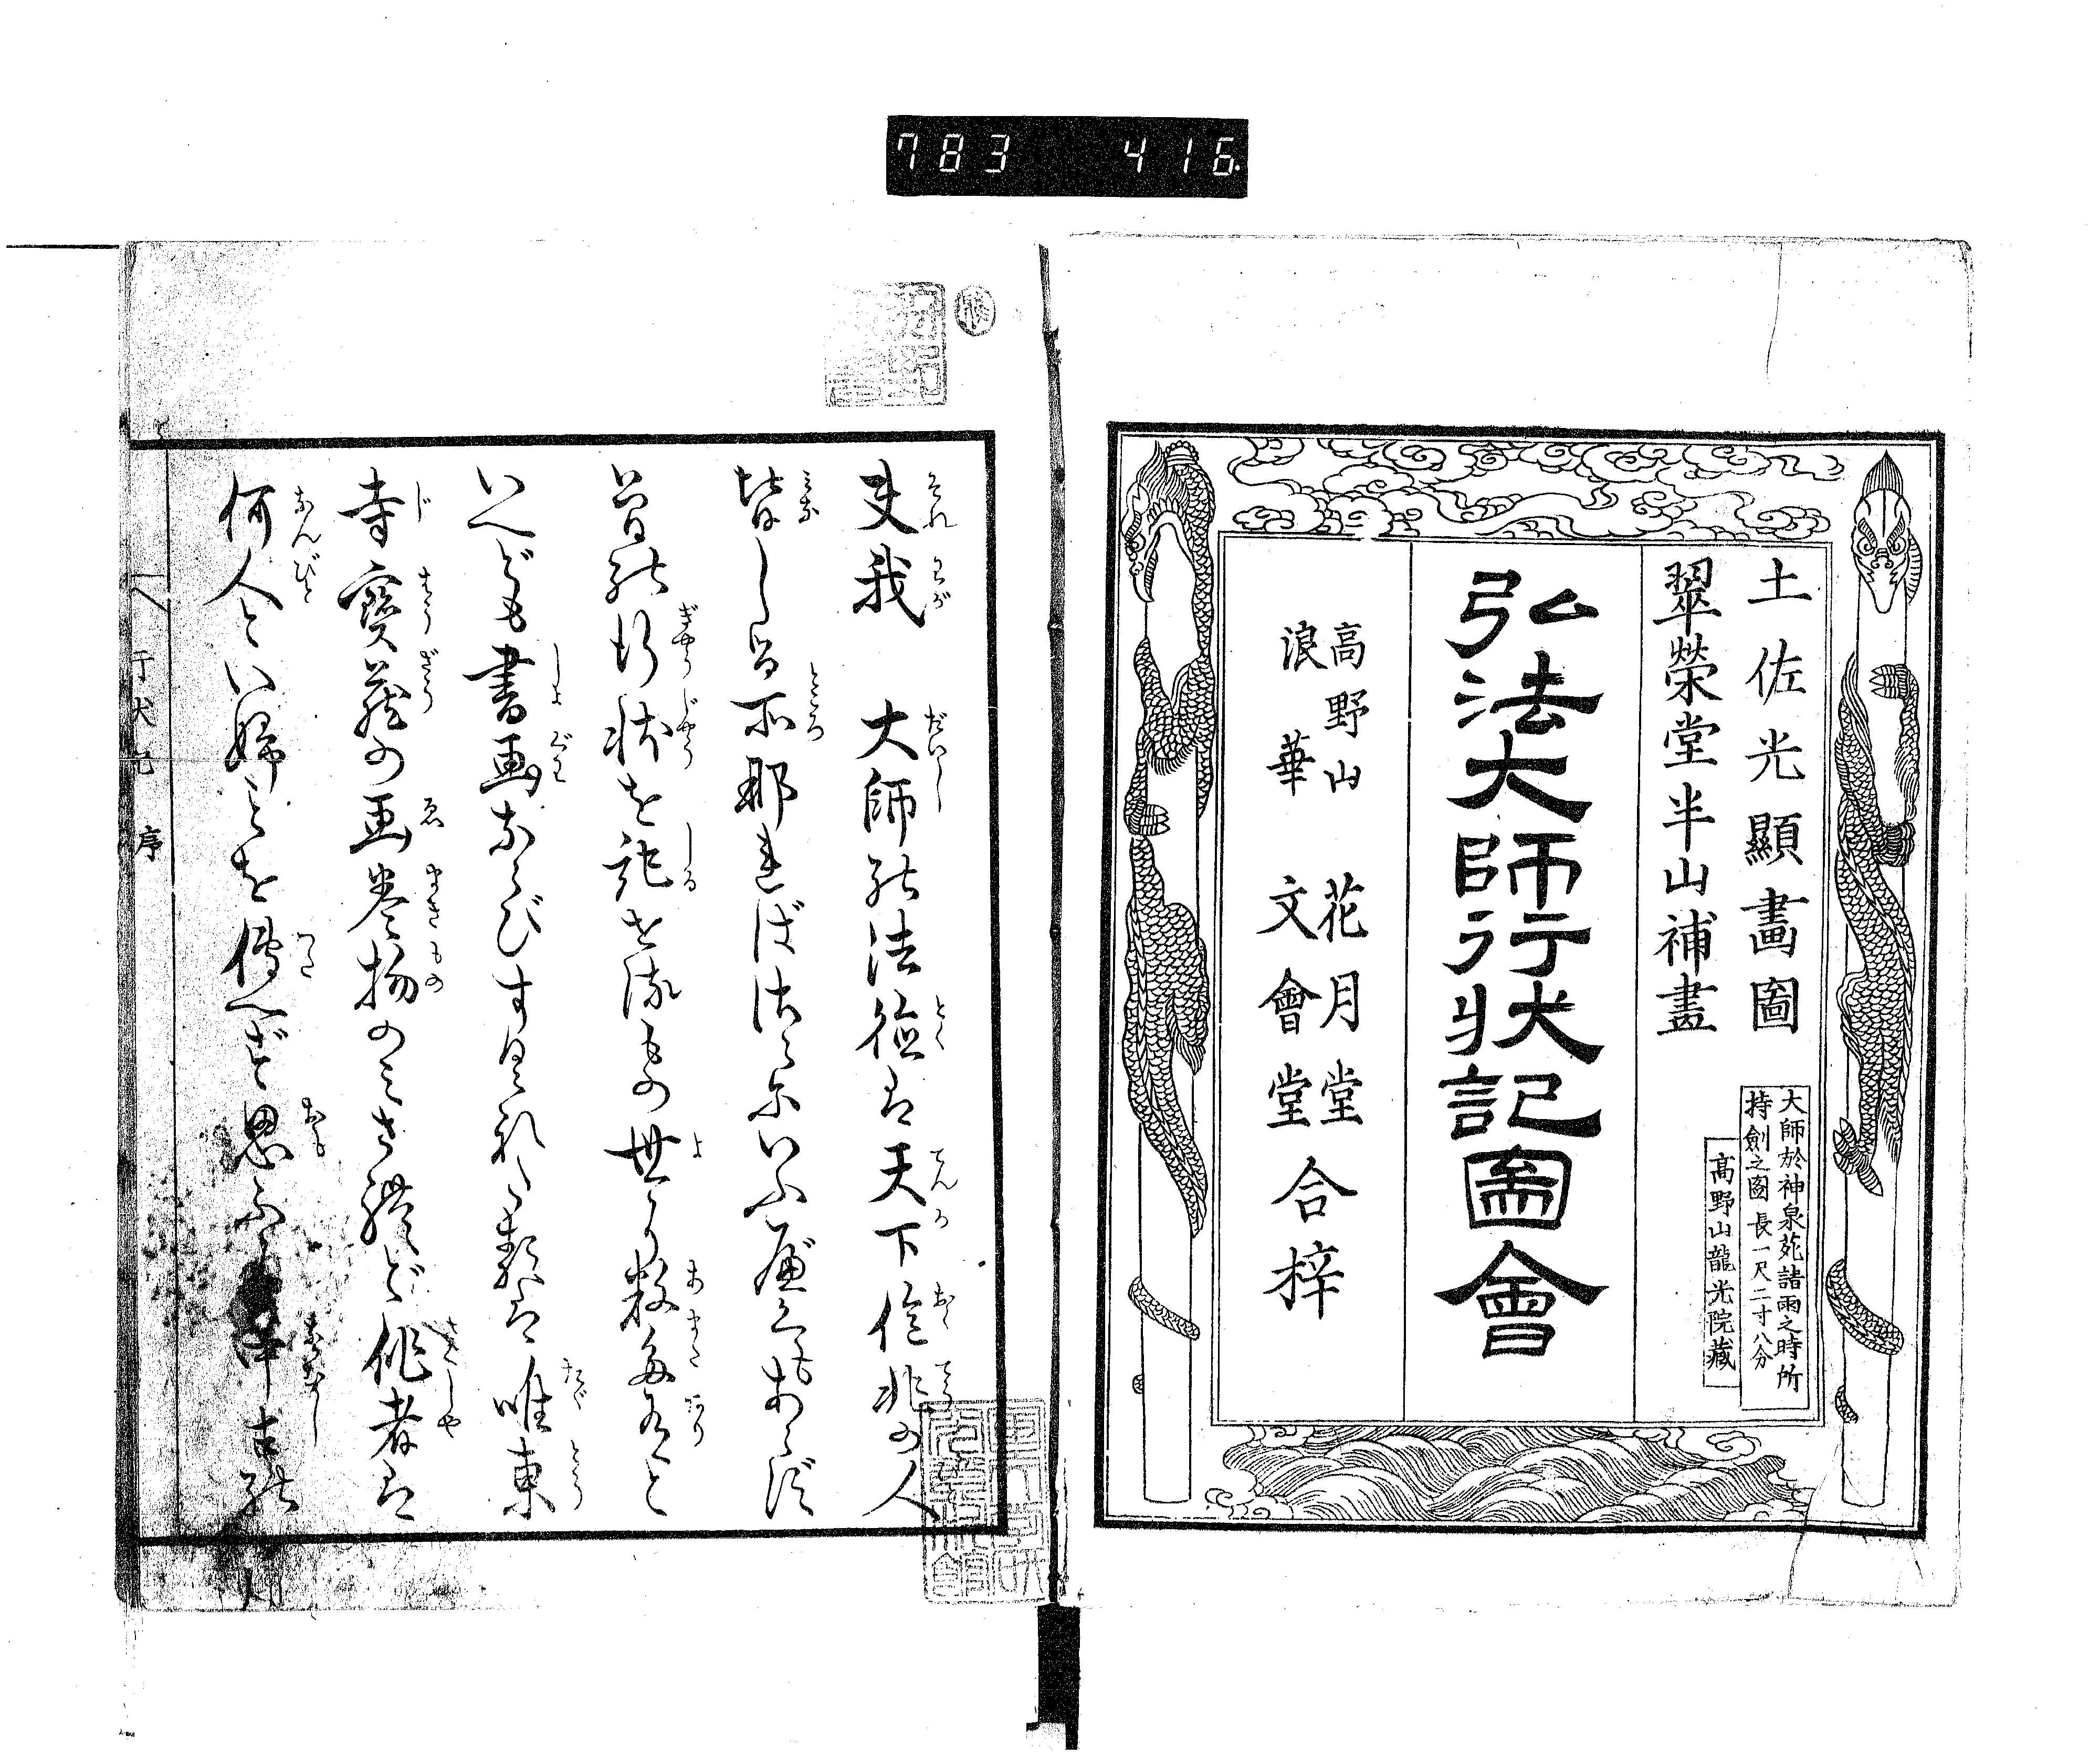 783 416
土佐光顯畫圖
翠榮堂半山補畫
大師於神泉苑請雨之時所
持劍之圖 長一尺二寸八分
高野山龍光院藏
弘法大師行状記圖會
高野山 花月堂
浪華 文會堂 合梓
夫我 大師能法徳は天下億兆の人
皆しる所那ればさらにいふべくもあらず
行状を記せるもの世に数多ありと
いへども書画ならびすぐれたる類は唯東
寺寶蔵の画巻物のみされど作者は
何人といふことを傳へず思ふに
序